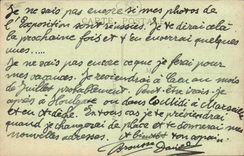 Je ne sais pas encore si mes photos de
l'Exposition sont réussies. Je te dirai cela
la prochaine fois et t'en enverrai quelques
unes.....
Je ne sais pas encore ce que je ferai pour
mes vacances. Je reviendrai à au mois
de Juillet probablement. Peut-être irais-je
après à Houlgate ou dans le Midi à Marseille
et en Ardèche. En tous cas je te préviendrai
quand je changerai de place et te donnerai mes
nouvelles adresses. Et bientôt ton copain.